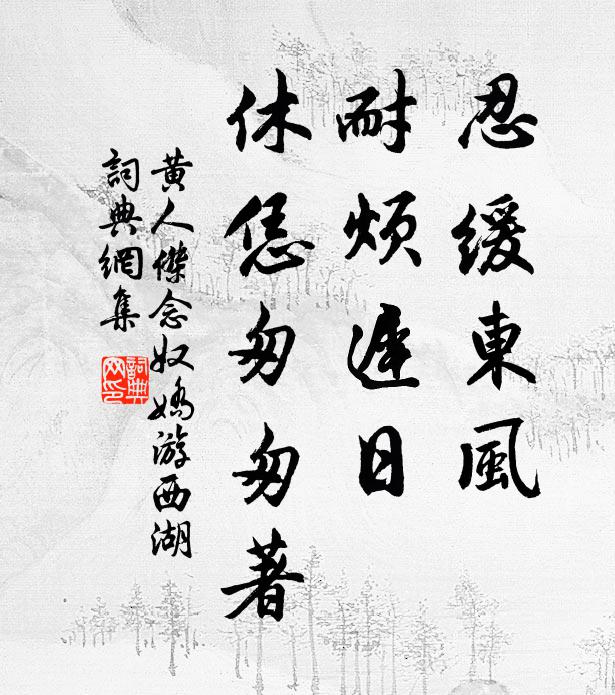 忍緩東風
耐煩遲日
休恁匆匆著
黃人傑念奴嬌游西湖
詞典網集
詞典網印